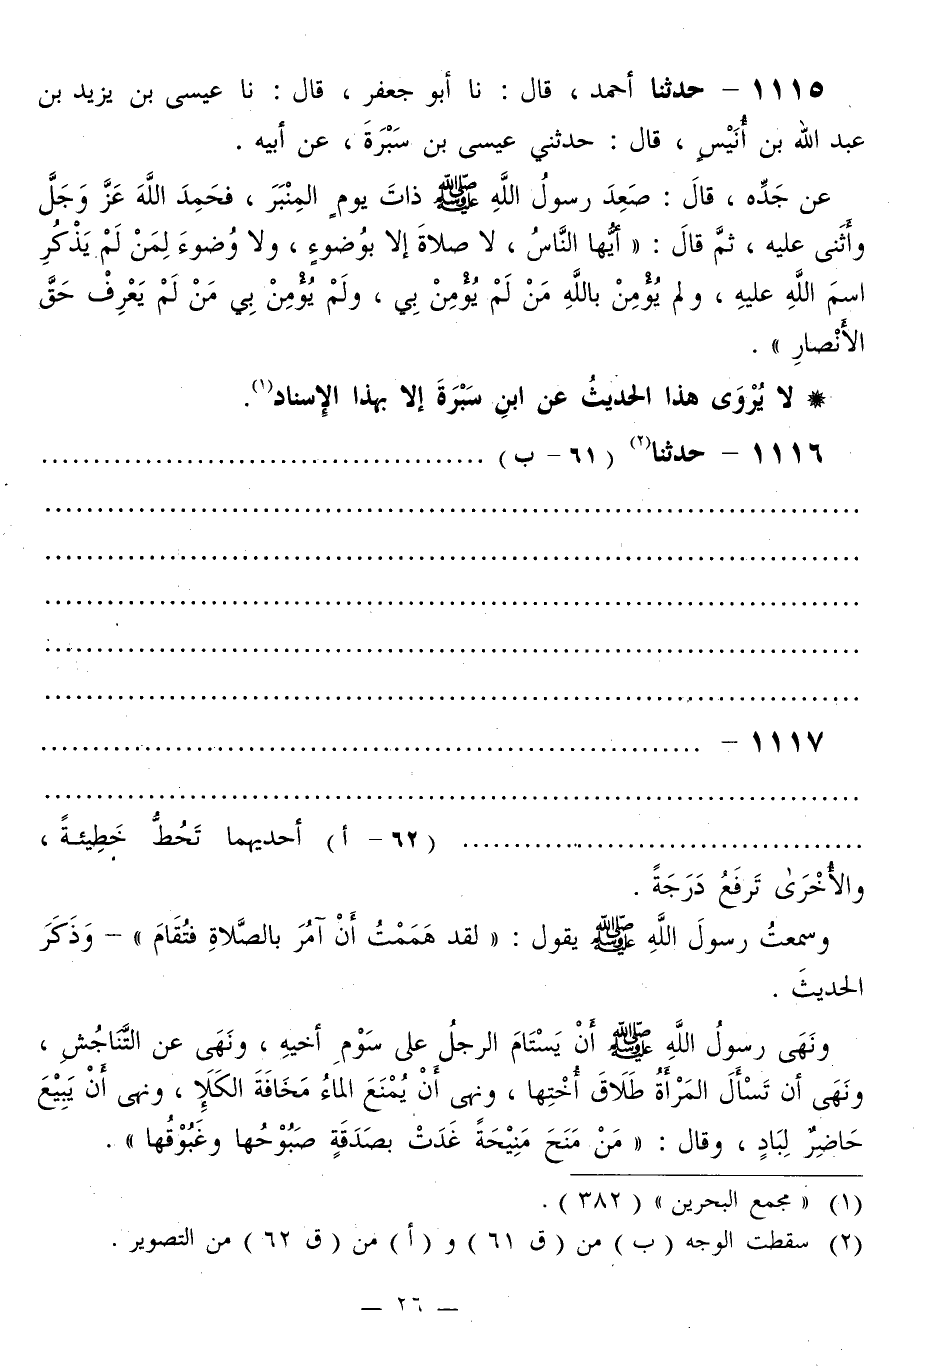 ١١١٥ – حدثنا أحمد ، قال : نا أبو جعفر ، قال : نا عيسى بن يزيد بن
عبد الله بن أُنَيْسٍ ، قال : حدثني عيسى بن سَبْرَةَ ، عن أبيه .
عن جَدِّه ، قالَ : صَعِدَ رسولُ اللَّهِ ﷺ ذاتَ يومٍ المِنْبَرَ ، فحَمِدَ اللَّهَ عَزَّ وَجَلَّ
وأَثنى عليه ، ثمَّ قالَ : « أيُّها النَّاسُ ، لا صلاةَ إلا بوُضوءٍ ، ولا وُضوءَ لِمَنْ لَمْ يَذْكُرِ
اسمَ اللَّهِ عليهِ ، ولم يُؤْمِنْ باللَّهِ مَنْ لَمْ يُؤْمِنْ بي ، ولَمْ يُؤْمِنْ بِي مَنْ لَمْ يَعْرِفْ حَقَّ
الأَنْصارِ » .
* لا يُرْوَى هذا الحديثُ عن ابنِ سَبْرَةَ إلا بهذا الإسناد(١).
١١١٦ – حدثنا(٢) ( ٦١ – ب ) ......................................
................................................................
................................................................
................................................................
................................................................
................................................................
١١١٧ – ....................................................
................................................................
................................ ( ٦٢ – أ ) أحديهما تَحُطُّ خَطِيئةً ،
والأُخْرَىٰ تَرفَعُ دَرَجَةً .
وسمعتُ رسولَ اللَّهِ ﷺ يقول : « لقد هَمَمْتُ أَنْ آمُرَ بالصَّلاةِ فتُقامَ » – وَذَكَرَ
الحديثَ .
ونَهَى رسولُ اللَّهِ ﷺ أَنْ يَسْتَامَ الرجلُ على سَوْمِ أخيهِ ، ونَهَى عن التَّنَاجُشِ ،
ونَهَى أن تَسْأَلَ المَرْأَةُ طَلَاقَ أُخْتِها ، ونهى أَنْ يُمْنَعَ الماءُ مَخَافَةَ الكَلَإِ ، ونهى أَنْ يَبِيْعَ
حَاضِرٌ لِبَادٍ ، وقال : « مَنْ مَنَحَ مَنِيْحَةً غَدَتْ بصَدَقَةٍ صَبُوْحُها وغَبُوْقُها » .
(١) « مجمع البحرين » ( ٣٨٢ ) .
(٢) سقطت الوجه ( ب ) من ( ق ٦١ ) و ( أ ) من ( ق ٦٢ ) من التصوير .
– ٢٦ –